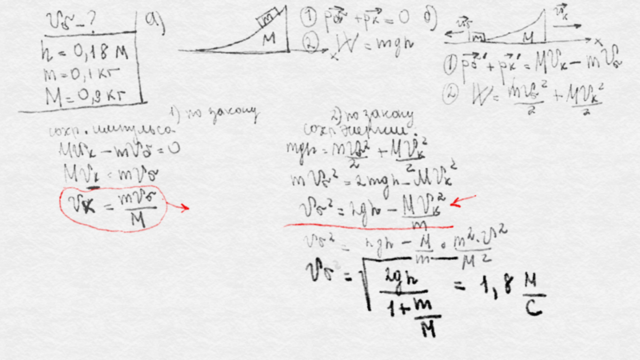 v_б - ?
h = 0,18 м
m = 0,1 кг
M = 0,8 кг
а)
m
M
x
① p⃗_б + p⃗_к = 0
② W = mgh
б)
v⃗_б
v⃗_к
M
x
① p⃗_б' + p⃗_к' = Mv_к - mv_б
② W = mv_б²/2 + Mv_к²/2
1) по закону
сохр. импульса
Mv_к - mv_б = 0
Mv_к = mv_б
v_к = mv_б/M
2) по закону
сохр энергии
mgh = mv_б²/2 + Mv_к²/2
mv_б² = 2mgh - Mv_к²
v_б² = 2gh - Mv_к²/m
v_б² = 2gh - M/m · m²·v²/M²
v_б = √(2gh/(1+m/M)) = 1,8 м/с